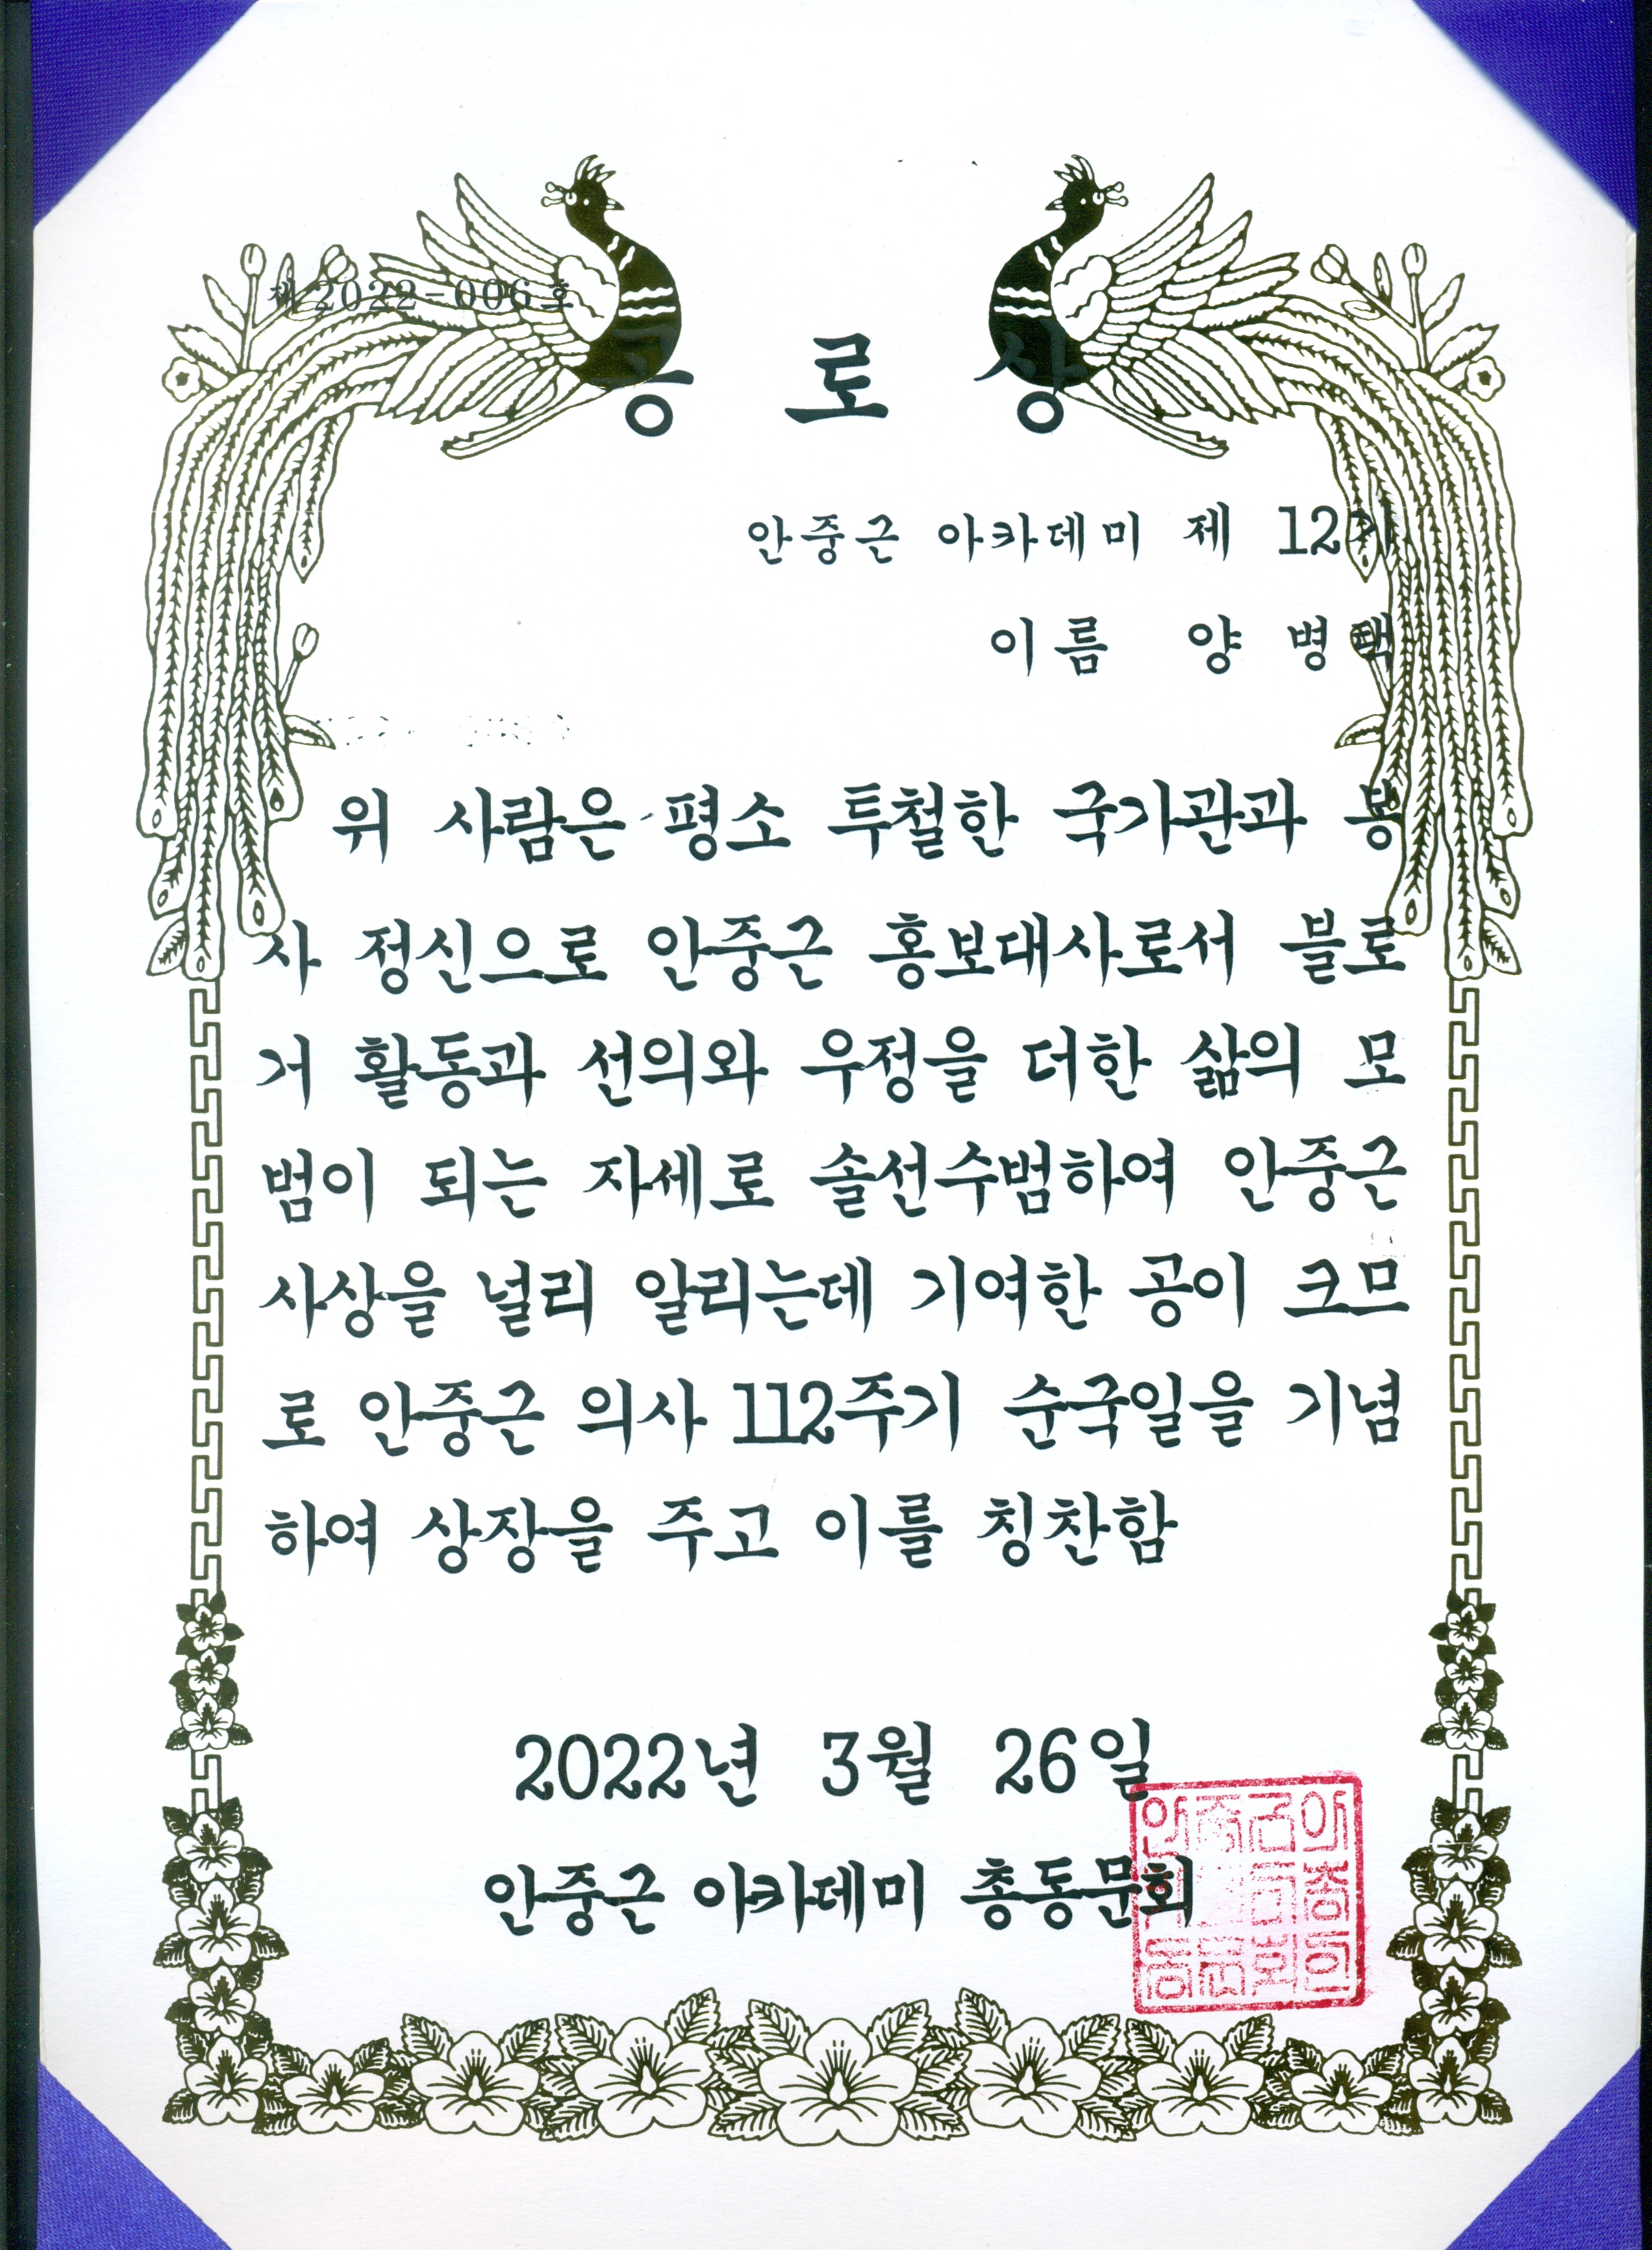 제2022-006호
공 로 상
안중근 아카데미 제 12기
이름 양 병 택
위 사람은 평소 투철한 국가관과 봉
사 정신으로 안중근 홍보대사로서 블로
거 활동과 선의와 우정을 더한 삶의 모
범이 되는 자세로 솔선수범하여 안중근
사상을 널리 알리는데 기여한 공이 크므
로 안중근 의사 112주기 순국일을 기념
하여 상장을 주고 이를 칭찬함
2022년 3월 26일
안중근 아카데미 총동문회